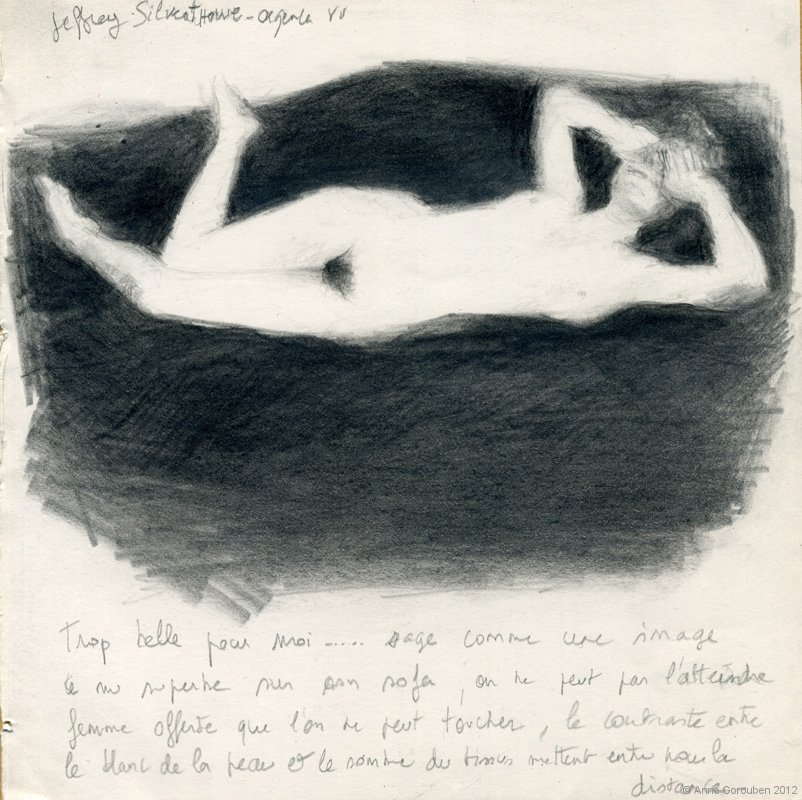 Jeffrey Silverthorne - agence VU
trop belle pour moi ..... sage comme une image
ce nu superbe sur son sofa, on ne peut pas l'atteindre
femme offerte que l'on ne peut toucher, le contraste entre
le blanc de la peau et le sombre du tissus mettent entre nous la
distance
© Anne Gorouben 2012